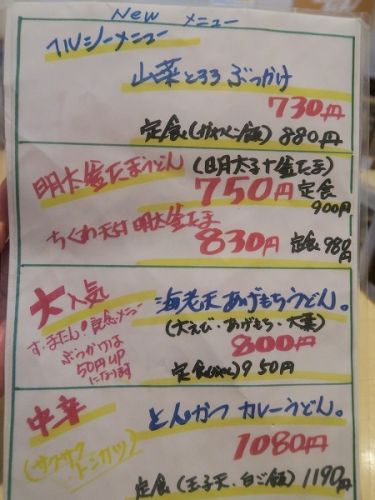 New メニュー
ヘルシーメニュー
山菜とろろ ぶっかけ
730円
定食 880円
明太釜たまうどん (明太子+釜たま)
750円 定食 900円
ちくわ天付 明太釜たま
830円 定食 980円
大人気 海老天 あげもちうどん。
す・またん!記念メニュー (大えび・あげもち・大葉)
ぶっかけは
50円UP
になります
800円
定食 950円
中辛 とんかつ カレーうどん。
(サクサク トンカツ) 1080円
定食 (玉子天・白ご飯) 1190円